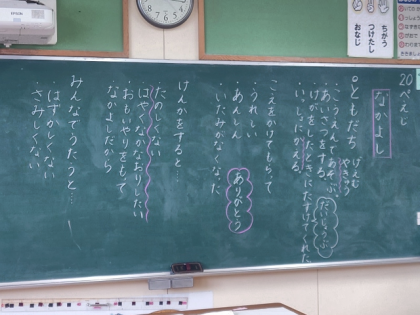 20 へんじ
なかよし
ともだち げえむ やきゅう
・こうえんで あそぶ
・あいさつをする だいじょうぶ
・けがをしたときにたすけてくれた
・いっしょにかえる
こえをかけてもらって
・うれしい
・あんしん ありがとう
・いたみがなくなった
けんかをすると…
たのしくない
・はやくなかなおりしたい
・おもいやりをもって
なかよしだから
みんなでうたうと…
はずかしくない
さみしくない
ちがう
つけたし
おなじ